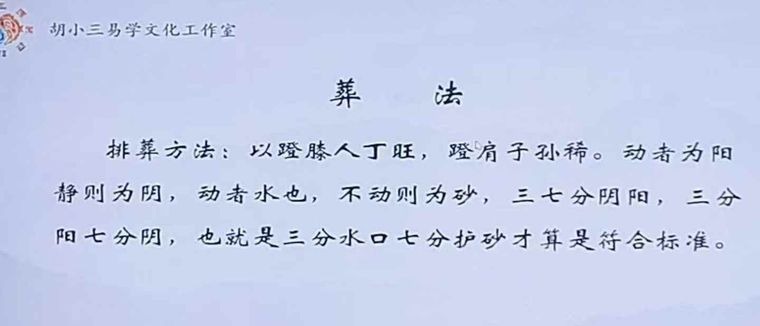 胡小三易学文化工作室
葬 法
排葬方法：以蹬膝人丁旺，蹬肩子孙稀。动者为阳
静则为阴，动者水也，不动则为砂，三七分阴阳，三分
阳七分阴，也就是三分水口七分护砂才算是符合标准。